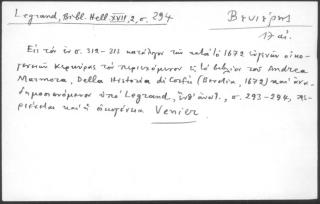 Legrand, Bibl. Hell. XVII, 2, σ. 294
Βενιέρης
17 αἰ.
Εἰς τὸν ἐν σ. 312-313 κατάλογον τῶν κατὰ τὸ 1672 εὐγενῶν οἰκο-
γενειῶν Κερκύρας τὸν περιεχόμενον εἰς τὸ βιβλίον τοῦ Andrea
Marmora, Della Historia di Corfù (Venetia, 1672) καὶ ἀνα-
δημοσιευόμενον ὑπὸ Legrand, ἔνθ' ἀνωτ., σ. 293-294, πε-
ριέχεται καὶ ἡ οἰκογένεια Venier.